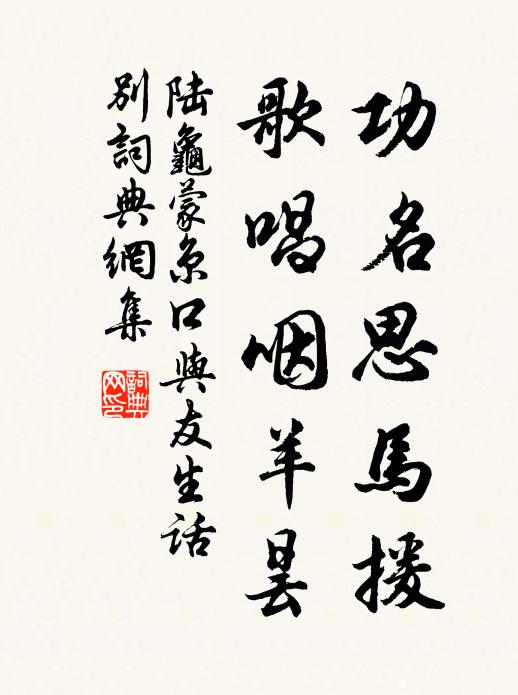 功名思馬援
歌唱咽羊曇
陸龜蒙京口與友生話
別詞典網集
詞典
网印